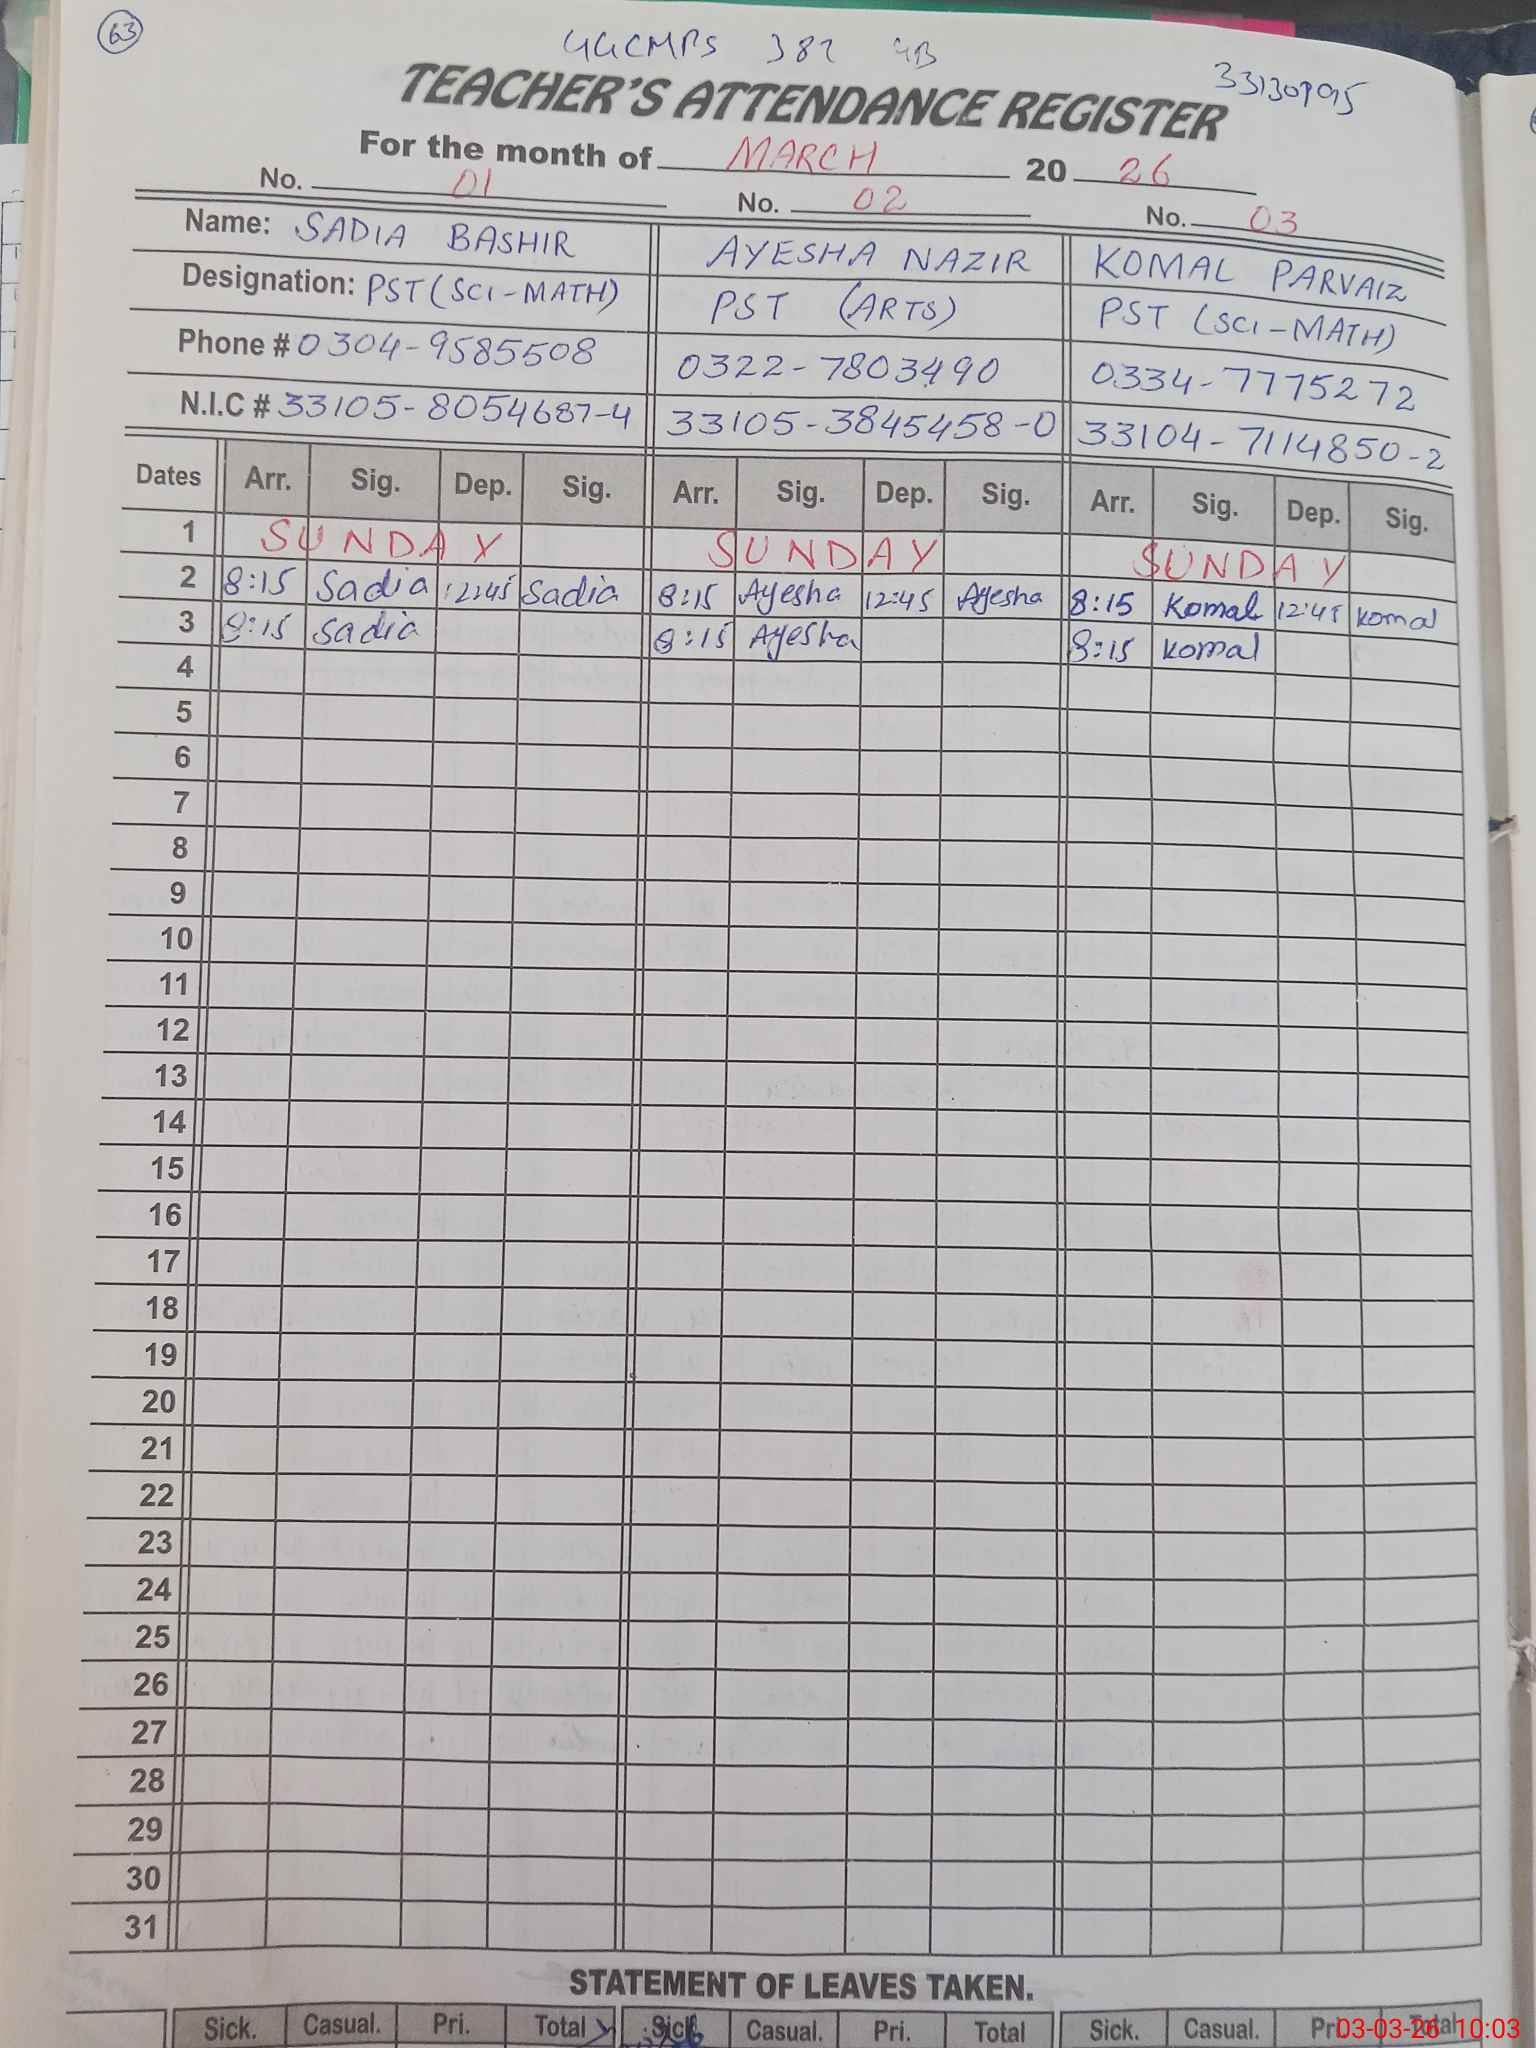 63
GGCMPS 382 GB
33130995
TEACHER'S ATTENDANCE REGISTER
For the month of MARCH 20 26
No. 01 No. 02 No. 03
Name: SADIA BASHIR AYESHA NAZIR KOMAL PARVAIZ
Designation: PST (SCI-MATH) PST (ARTS) PST (SCI-MATH)
Phone # 0304-9585508 0322-7803490 0334-7775272
N.I.C # 33105-8054687-4 33105-3845458-0 33104-7114850-2
Dates Arr. Sig. Dep. Sig. Arr. Sig. Dep. Sig. Arr. Sig. Dep. Sig.
1 SUNDAY SUNDAY SUNDAY
2 8:15 Sadia 12:45 Sadia 8:15 Ayesha 12:45 Ayesha 8:15 Komal 12:45 Komal
3 8:15 Sadia 8:15 Ayesha 8:15 Komal
4
5
6
7
8
9
10
11
12
13
14
15
16
17
18
19
20
21
22
23
24
25
26
27
28
29
30
31
STATEMENT OF LEAVES TAKEN.
Sick. Casual. Pri. Total Sick. Casual. Pri. Total Sick. Casual. Pri. Total
03-03-26 10:03